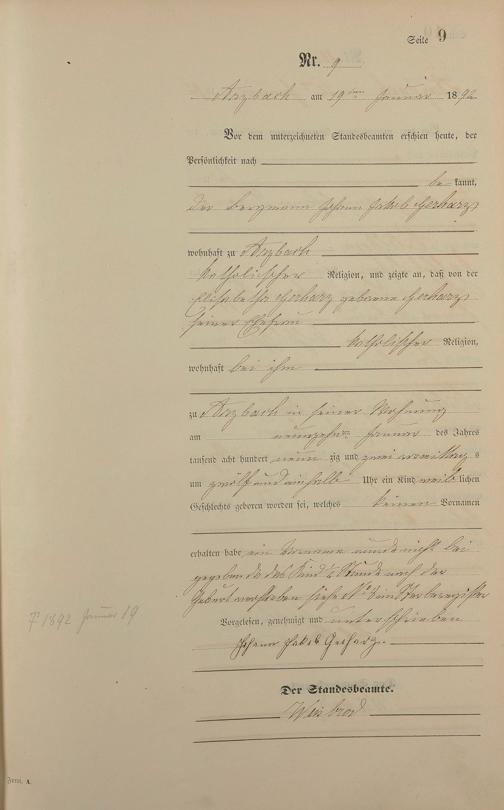 Seite 9
Nr. 9
Arzbach am 19ten Januar 1892
Vor dem unterzeichneten Standesbeamten erschien heute, der
Persönlichkeit nach
be kannt,
der Bergmann Johann Jakob Gerharz
wohnhaft zu Arzbach
katholischer Religion, und zeigte an, daß von der
Elisabetha Gerharz geborene Gerharz
seiner Ehefrau
katholischer Religion,
wohnhaft bei ihm
zu Arzbach in seiner Wohnung
am neunzehnten Januar des Jahres
tausend acht hundert neun zig und zwei vormittag s
um zwölf und einhalb Uhr ein Kind weib lichen
Geschlechts geboren worden sei, welches keinen Vornamen
erhalten habe ein Vorname wurde nicht bei
gegeben da das Kind 1/2 Stunde nach der
Geburt verstorben siehe No Sterberegister
Vorgelesen, genehmigt und unterschrieben
Johann Jakob Gerharz
† 1892 Januar 19
Der Standesbeamte.
Weisbrod
Form. A.